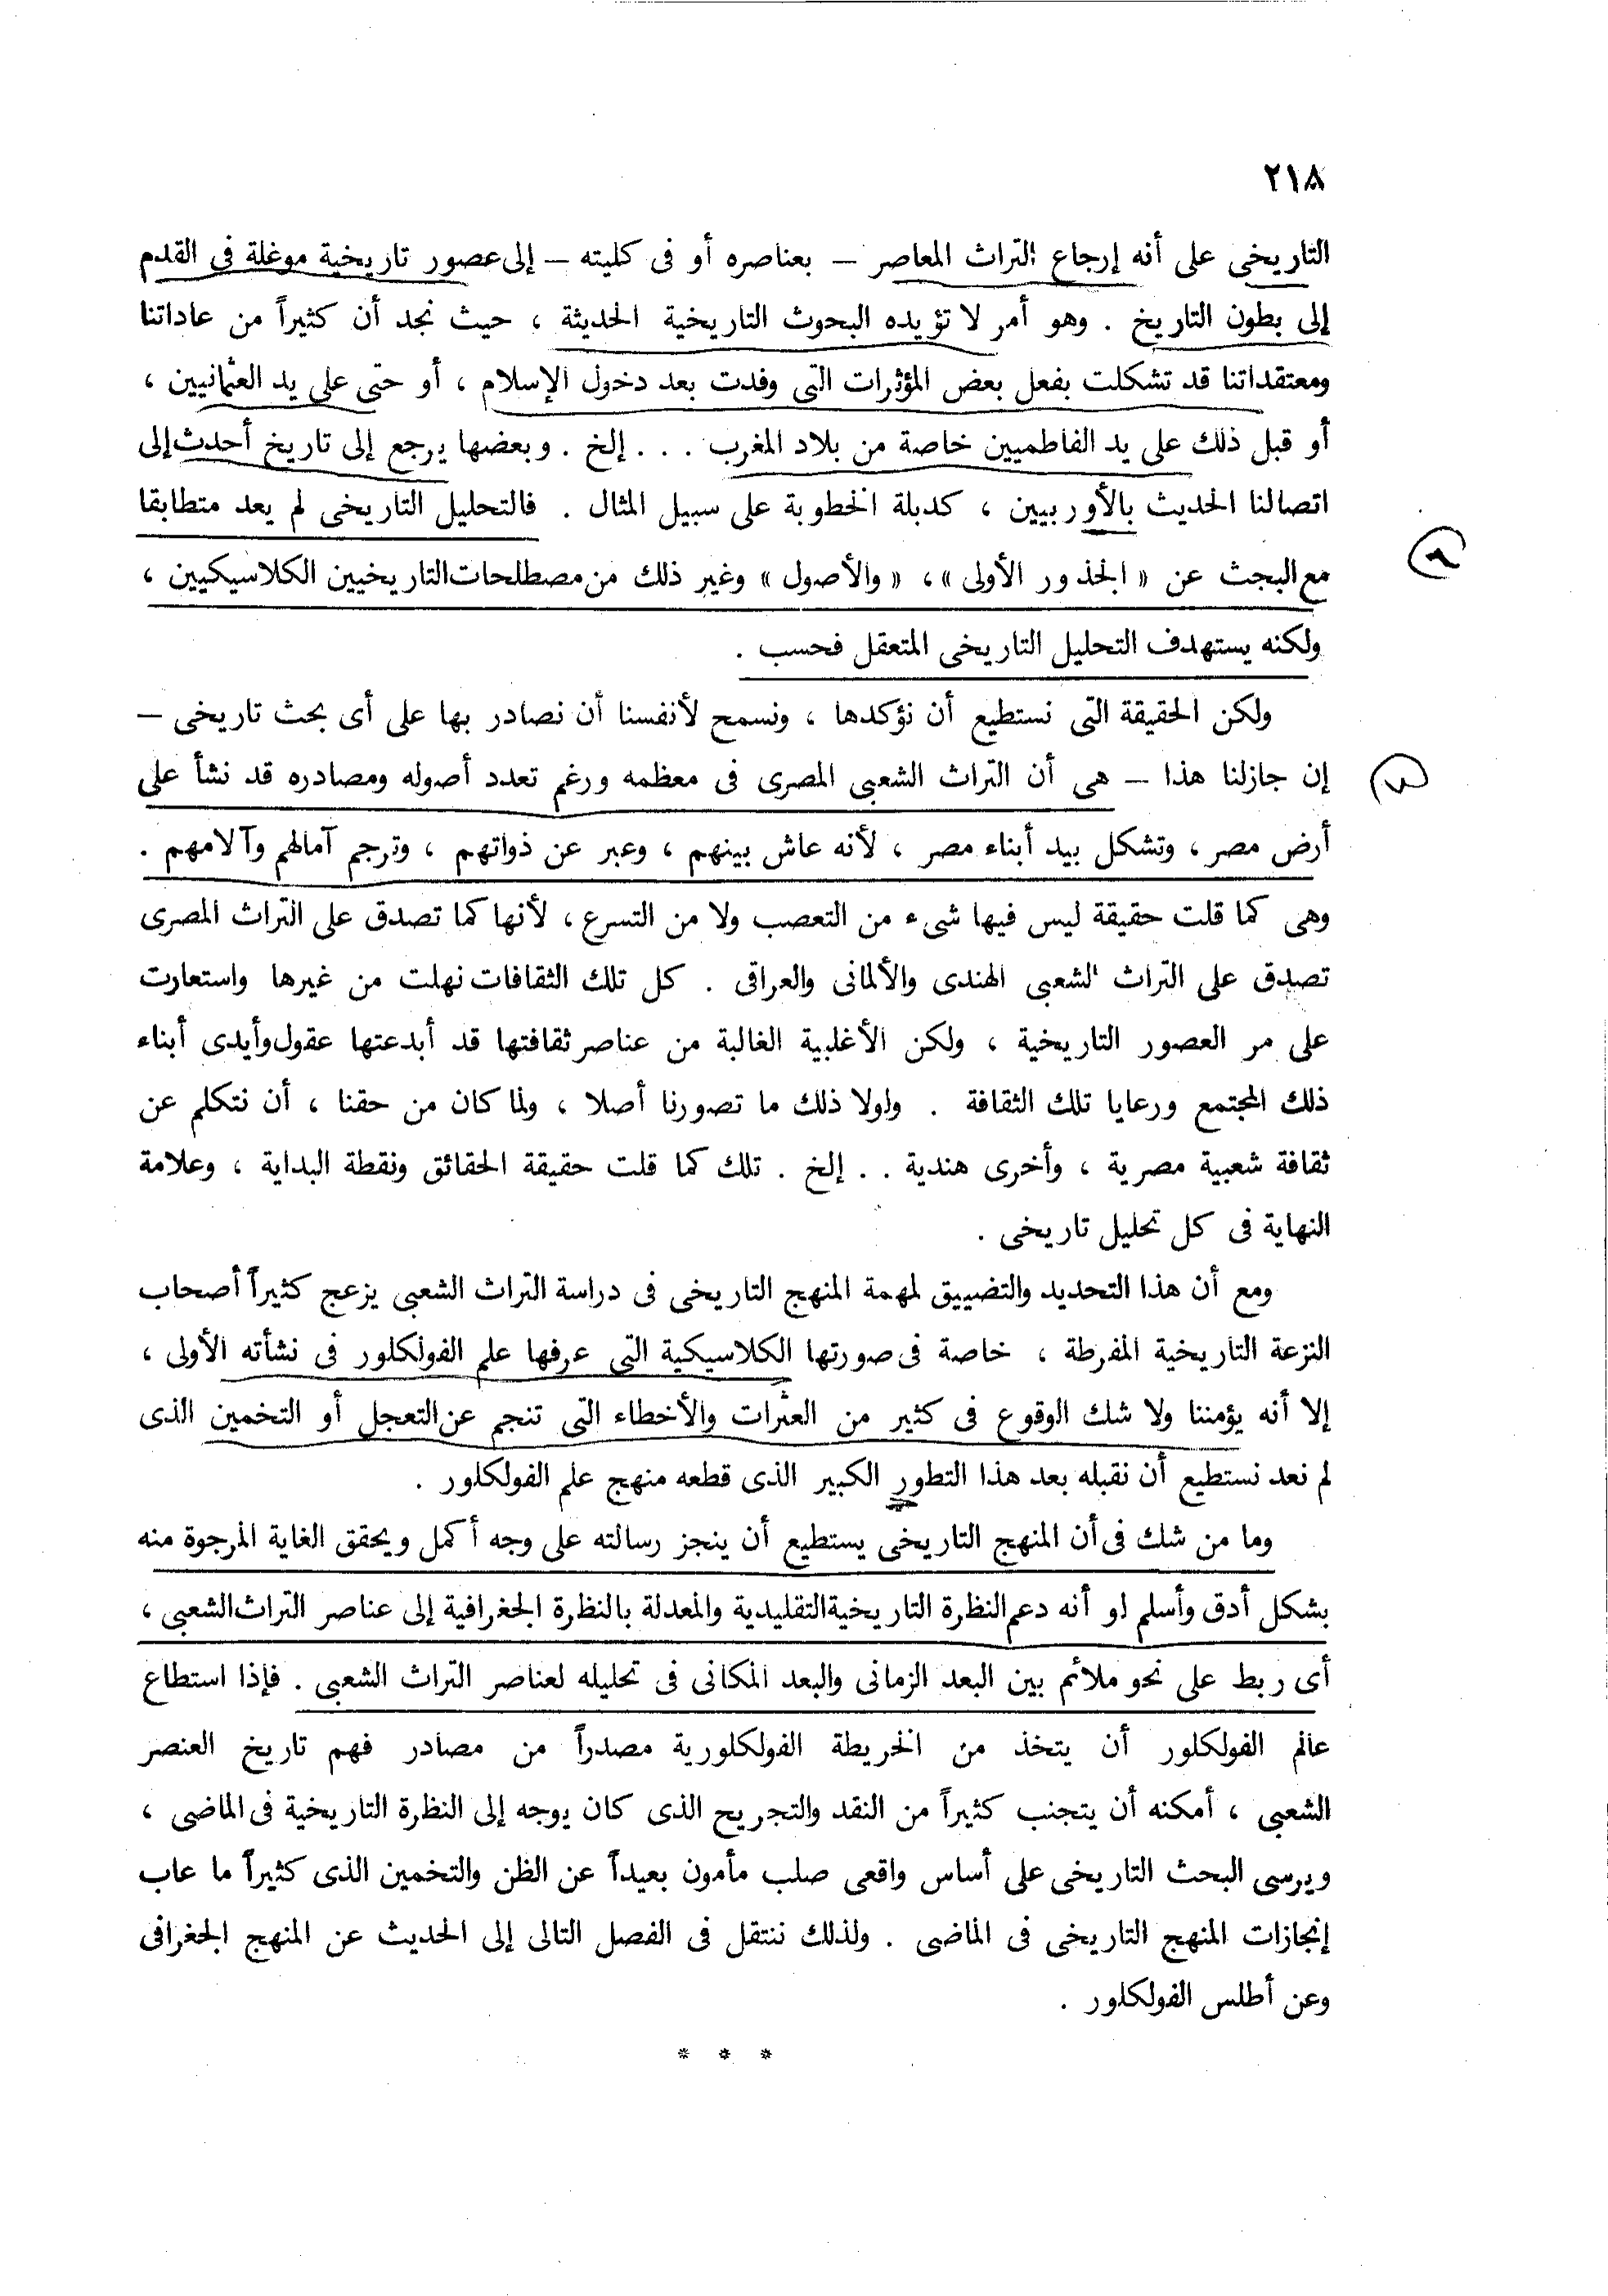 ٢١٨
التاريخى على أنه إرجاع التراث المعاصر — بعناصره أو فى كليته — إلى عصور تاريخية موغلة فى القدم
إلى بطون التاريخ . وهو أمر لا تؤيده البحوث التاريخية الحديثة ، حيث نجد أن كثيراً من عاداتنا
ومعتقداتنا قد تشكلت بفعل بعض المؤثرات التى وفدت بعد دخول الإسلام ، أو حتى على يد العثمانيين ،
أو قبل ذلك على يد الفاطميين خاصة من بلاد المغرب . . . إلخ . وبعضها يرجع إلى تاريخ أحدث إلى
اتصالنا الحديث بالأوربيين ، كدبلة الخطوبة على سبيل المثال . فالتحليل التاريخى لم يعد متطابقا
مع البحث عن « الجذور الأولى » ، « والأصول » وغير ذلك من مصطلحات التاريخيين الكلاسيكيين ،
ولكنه يستهدف التحليل التاريخى المتعقل فحسب .
ولكن الحقيقة التى نستطيع أن نؤكدها ، ونسمح لأنفسنا أن نصادر بها على أى بحث تاريخى —
إن جازلنا هذا — هى أن التراث الشعبى المصرى فى معظمه ورغم تعدد أصوله ومصادره قد نشأ على
أرض مصر ، وتشكل بيد أبناء مصر ، لأنه عاش بينهم ، وعبر عن ذواتهم ، وترجم آمالهم وآلامهم .
وهى كما قلت حقيقة ليس فيها شىء من التعصب ولا من التسرع ، لأنها كما تصدق على التراث المصرى
تصدق على التراث الشعبى الهندى والألمانى والعراقى . كل تلك الثقافات نهلت من غيرها واستعارت
على مر العصور التاريخية ، ولكن الأغلبية الغالبة من عناصر ثقافتها قد أبدعتها عقول وأيدى أبناء
ذلك المجتمع ورعايا تلك الثقافة . ولولا ذلك ما تصورنا أصلا ، ولما كان من حقنا ، أن نتكلم عن
ثقافة شعبية مصرية ، وأخرى هندية . . إلخ . تلك كما قلت حقيقة الحقائق ونقطة البداية ، وعلامة
النهاية فى كل تحليل تاريخى .
ومع أن هذا التحديد والتضييق لمهمة المنهج التاريخى فى دراسة التراث الشعبى يزعج كثيراً أصحاب
النزعة التاريخية المفرطة ، خاصة فى صورتها الكلاسيكية التى عرفها علم الفولكلور فى نشأته الأولى ،
إلا أنه يؤمننا ولا شك الوقوع فى كثير من العثرات والأخطاء التى تنجم عن التعجل أو التخمين الذى
لم نعد نستطيع أن نقبله بعد هذا التطور الكبير الذى قطعه منهج علم الفولكلور .
وما من شك فى أن المنهج التاريخى يستطيع أن ينجز رسالته على وجه أكمل ويحقق الغاية المرجوة منه
بشكل أدق وأسلم لو أنه دعم النظرة التاريخية التقليدية والمعدلة بالنظرة الجغرافية إلى عناصر التراث الشعبى ،
أى ربط على نحو ملائم بين البعد الزمانى والبعد المكانى فى تحليله لعناصر التراث الشعبى . فإذا استطاع
عالم الفولكلور أن يتخذ من الخريطة الفولكلورية مصدراً من مصادر فهم تاريخ العنصر
الشعبى ، أمكنه أن يتجنب كثيراً من النقد والتجريح الذى كان يوجه إلى النظرة التاريخية فى الماضى ،
ويرسى البحث التاريخى على أساس واقعى صلب مأمون بعيداً عن الظن والتخمين الذى كثيراً ما عاب
إنجازات المنهج التاريخى فى الماضى . ولذلك ننتقل فى الفصل التالى إلى الحديث عن المنهج الجغرافى
وعن أطلس الفولكلور .
* * *